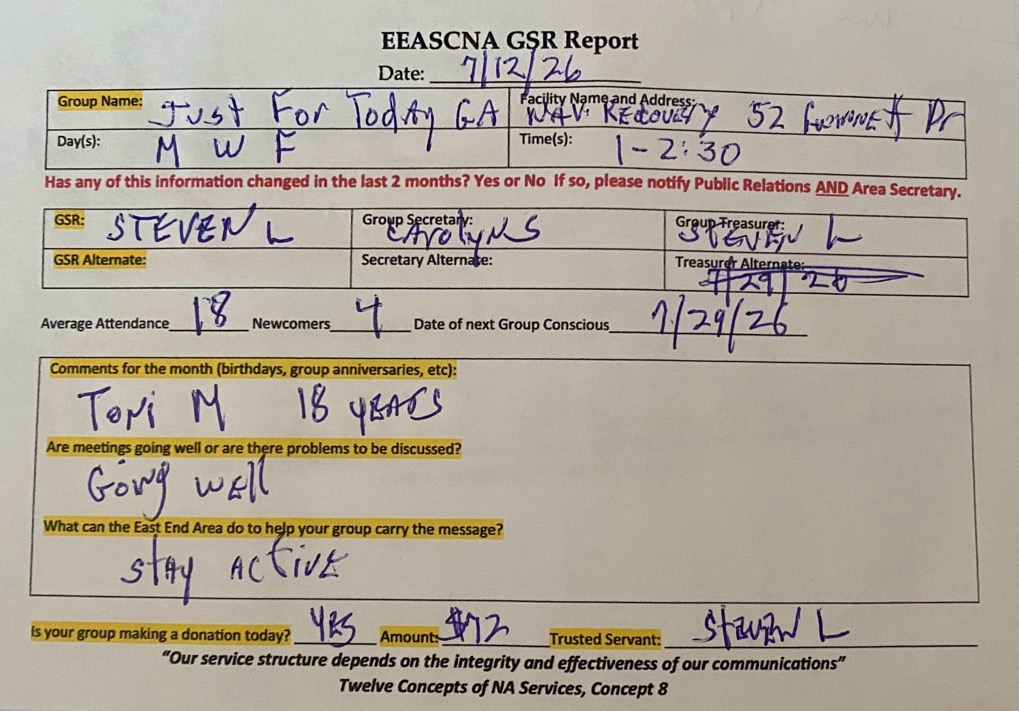 EEASCNA GSR Report
Date: 7/12/26
Group Name: Just For Today GA Facility Name and Address: NAV. RECOVERY 52 Gwinnett Dr
Day(s): M W F Time(s): 1-2:30
Has any of this information changed in the last 2 months? Yes or No If so, please notify Public Relations AND Area Secretary.
GSR: STEVEN L Group Secretary: Carolyn S Group Treasurer: STEVEN L
GSR Alternate: Secretary Alternate: Treasurer Alternate:
Average Attendance 18 Newcomers 4 Date of next Group Conscious 7/29/26
Comments for the month (birthdays, group anniversaries, etc):
Toni M 18 YEARS
Are meetings going well or are there problems to be discussed?
Going well
What can the East End Area do to help your group carry the message?
STAY ACTIVE
Is your group making a donation today? YES Amount: $72 Trusted Servant: Steven L
"Our service structure depends on the integrity and effectiveness of our communications"
Twelve Concepts of NA Services, Concept 8